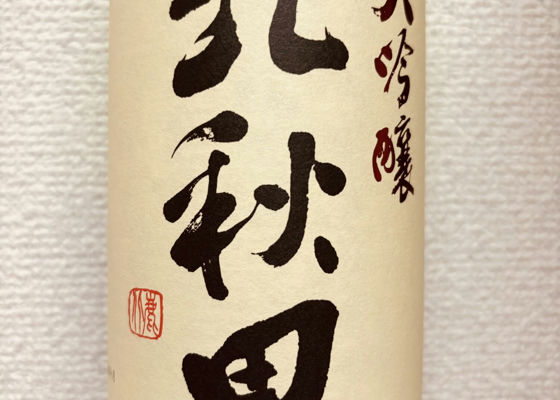 大吟醸
北秋田